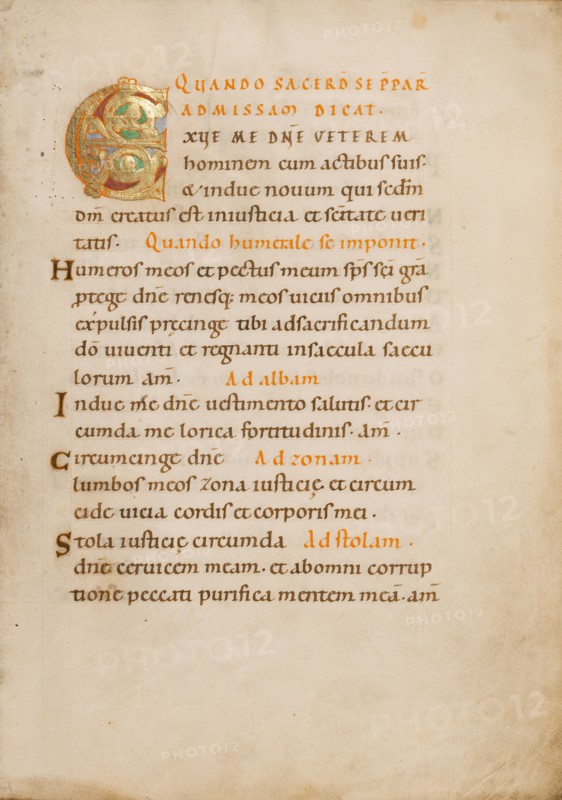 QUANDO SACERD̄ SE P̄PAR̄
AD MISSAM DICAT·
EXUE ME DN̄E VETEREM
hominem cum actibus suis·
& indue nouum qui sedm̄
dm̄ creatus est iniusticia et sc̄itate ueri
tatis· Quando humerale se imponit·
Humeros meos et pectus meum sp̄s sc̄i grā
ꝓtege dn̄e renesq; meos uiciis omnibus
expulsis precinge tibi adsacrificandum
dō uiuenti et regnanti insaecula saecu
lorum am̄· Ad albam
Indue me dn̄e uestimento salutis· et cir
cumda me lorica fortitudinis· am̄·
Circumcinge dn̄e Ad zonam·
lumbos meos zona iusticię et circum
cide uicia cordis et corporis mei·
Stola iusticię circumda Ad stolam·
dn̄e ceruicem meam· et abomni corrup
tione peccati purifica mentem meā· am̄
PHOTO12